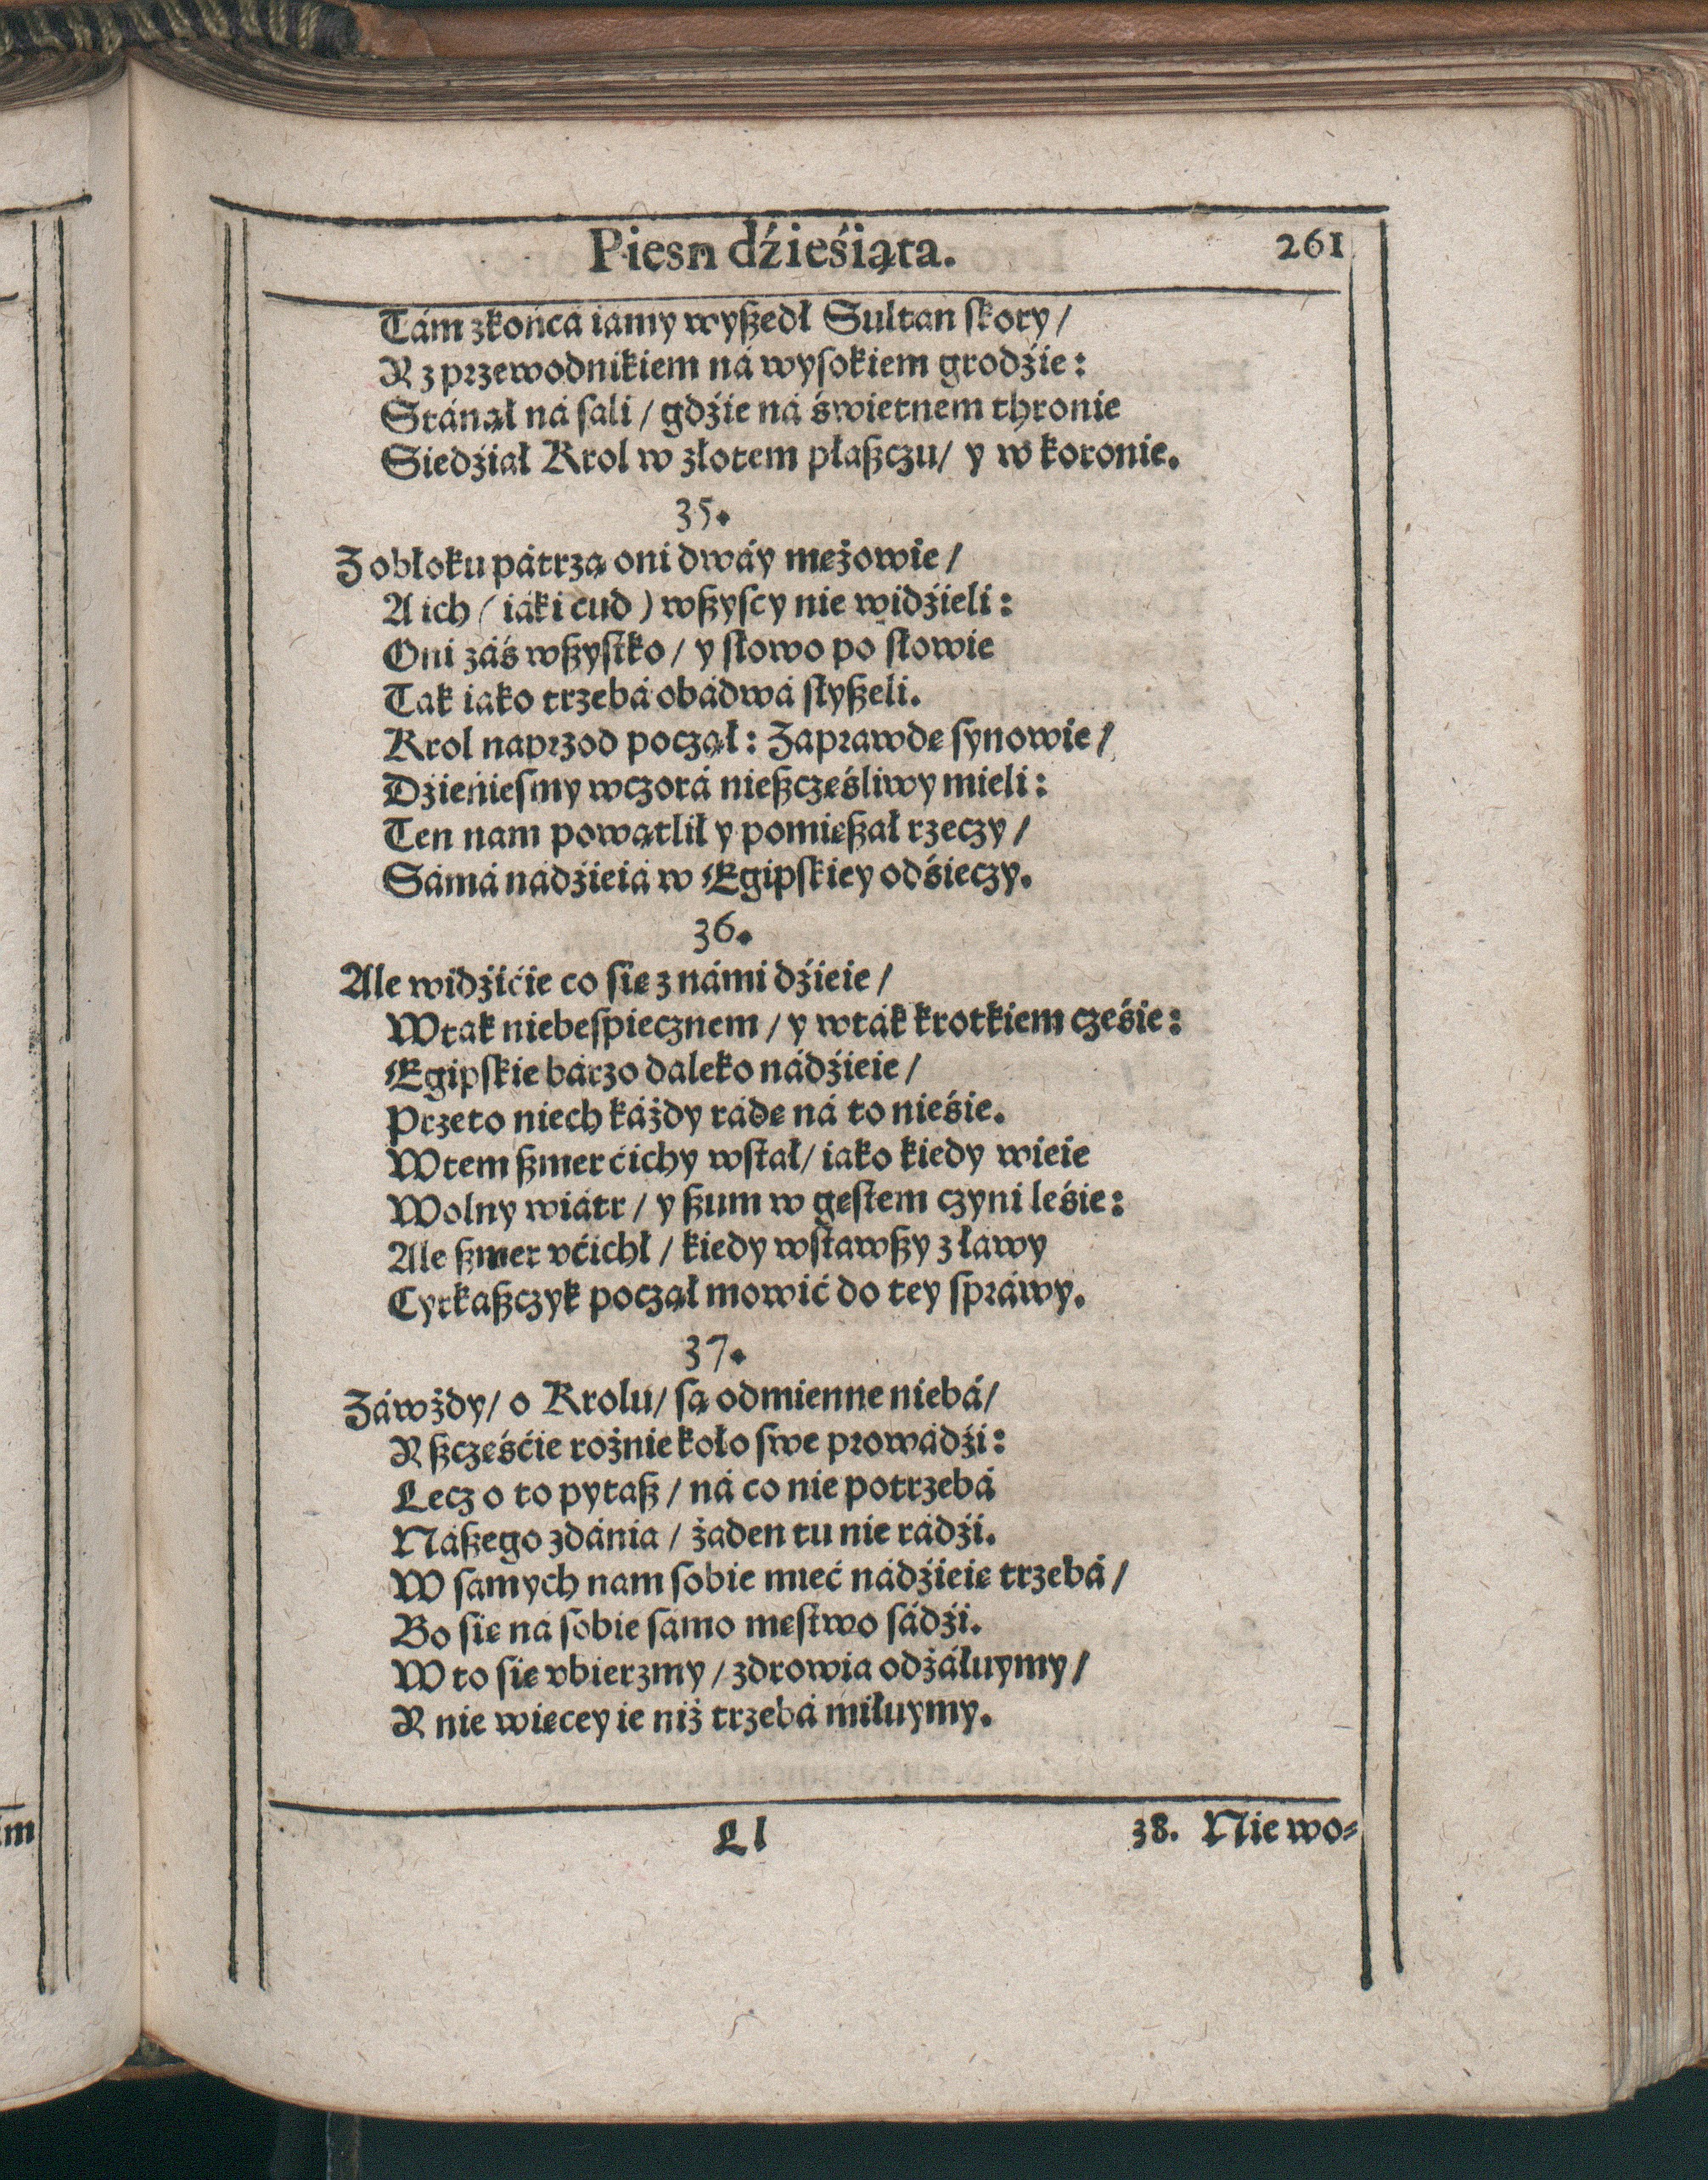 Piesn dźieśiąta. 261
Tám zkońcá iámy wyszedł Sultan skory /
Y z przewodnikiem ná wysokiem grodźie:
Stánął ná sali / gdźie ná świetnem thronie
Siedźiał Krol w złotem płaszczu / y w koronie.
35.
Z obłoku pátrzą oni dwáy mężowie /
A ich (iáki cud) wszyscy nie widźieli:
Oni záś wszystko / y słowo po słowie
Tak iáko trzebá obádwá słyszeli.
Krol naprzod począł: Zaprawdę synowie /
Dźieńiesmy wczorá nieszczęśliwy mieli:
Ten nam powątlił y pomięszał rzeczy /
Sámá nádźieiá w Egipskiey odśieczy.
36.
Ale widźićie co się z námi dźieie /
W tak niebespiecznem / y w ták krotkiem cześie:
Egipskie bárzo daleko nádźieie /
Przeto niech káżdy rádę ná to nieśie.
W tem szmer ćichy wstał / iako kiedy wieie
Wolny wiátr / y szum w gęstem czyni leśie:
Ale szmer vćichł / kiedy wstawszy z łáwy
Cyrkaszczyk począł mowić do tey spráwy.
37.
Záwżdy / o Krolu / są odmienne niebá /
Y szczęśćie rożnie koło swe prowádźi:
Lecz o to pytasz / ná co nie potrzebá
Nászego zdánia / żaden tu nie rádźi.
W samych nam sobie mieć nádźieię trzebá /
Bo się ná sobie sámo męstwo sádźi.
W to się vbierzmy / zdrowia odżáłuymy /
Y nie więcey ie niż trzebá miłuymy.
Ll 38. Nie wo-
im